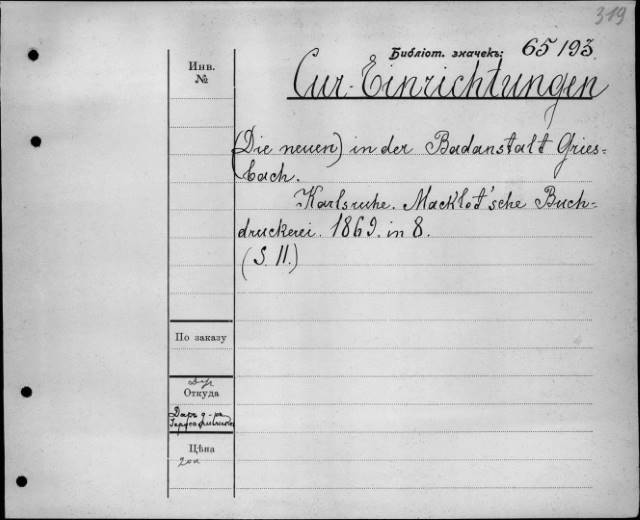 319
Библіот. значекъ: 65/193.
Инв.
№
Cur-Einrichtungen
(Die neuen) in der Badanstalt Gries=
bach.
Karlsruhe. Macklot'sche Buch-
druckerei. 1869. in 8.
(S. 11.)
По заказу
Откуда
Даръ д-ра
Цѣна